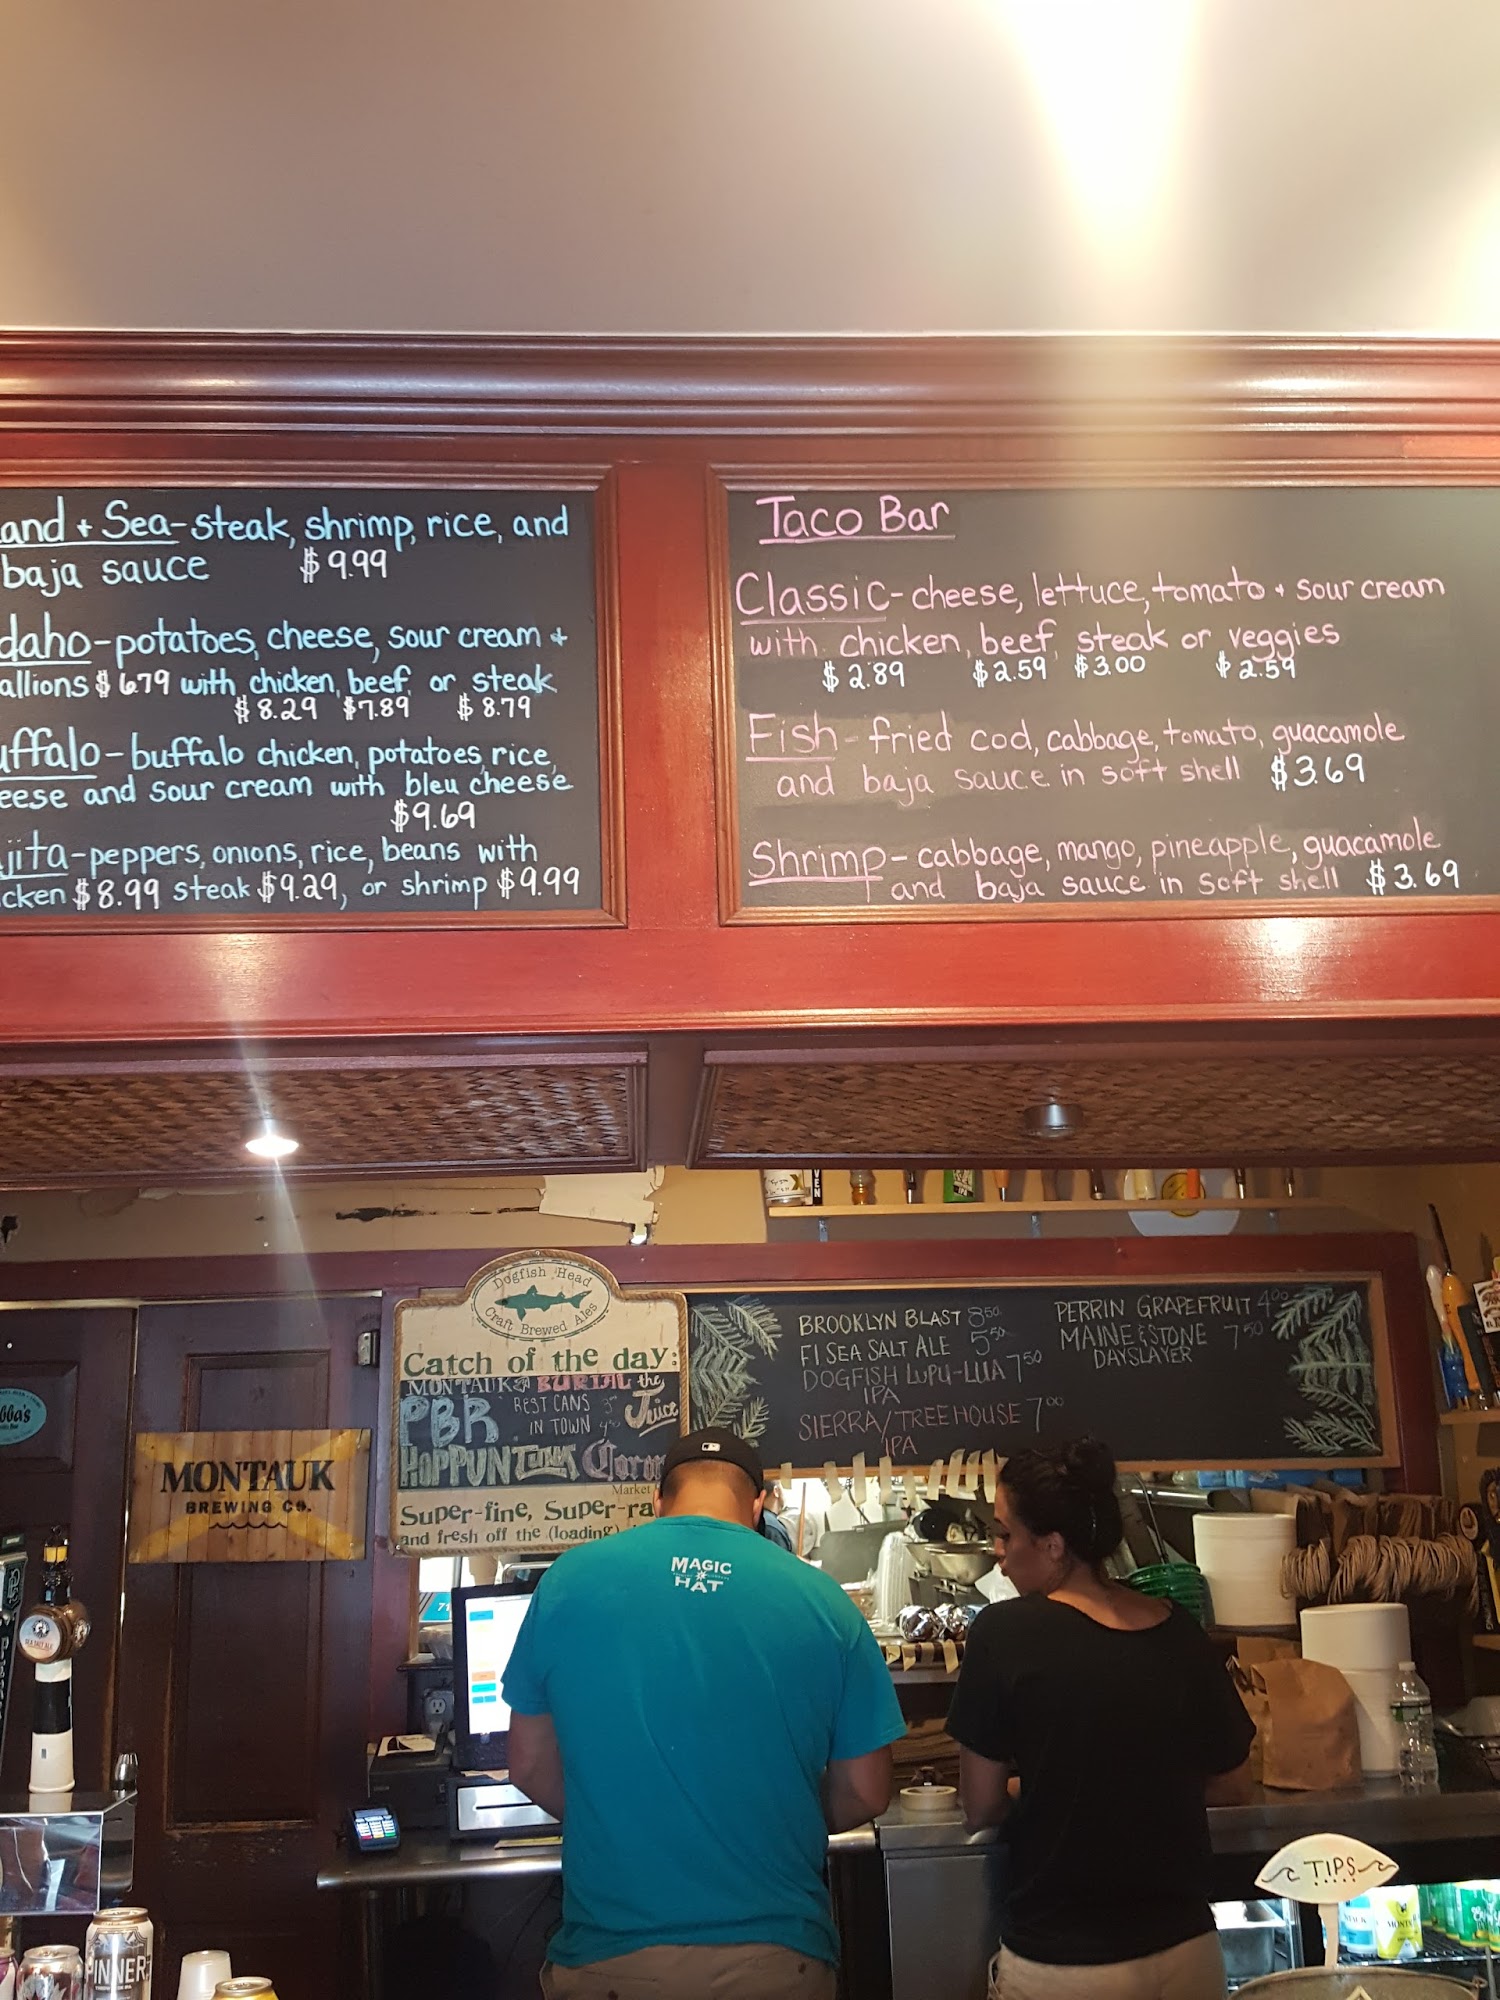 and + Sea - steak, shrimp, rice, and
baja sauce $9.99
daho - potatoes, cheese, sour cream +
allions $6.79 with chicken, beef, or steak
$8.29 $7.89 $8.79
uffalo - buffalo chicken, potatoes, rice,
eese and sour cream with bleu cheese
$9.69
jita - peppers, onions, rice, beans with
cken $8.99 steak $9.29, or shrimp $9.99
Taco Bar
Classic - cheese, lettuce, tomato + sour cream
with chicken, beef, steak or veggies
$2.89 $2.59 $3.00 $2.59
Fish - fried cod, cabbage, tomato, guacamole
and baja sauce in soft shell $3.69
Shrimp - cabbage, mango, pineapple, guacamole
and baja sauce in soft shell $3.69
Dogfish Head
Craft Brewed Ales
Catch of the day:
MONTAUK BURIAL the
PBR BEST CANS Juice
IN TOWN
HOPPUN Coron
Market
Super-fine, Super-ra
and fresh off the (loading)
BROOKLYN BLAST 8.50
FI SEA SALT ALE 5.50
DOGFISH LUPU-LUA 7.50
IPA
SIERRA/TREEHOUSE 7.00
IPA
PERRIN GRAPEFRUIT 4.00
MAINE & STONE 7.50
DAYSLAYER
MONTAUK
BREWING CO.
bba's
MAGIC
HAT
SEA SALT ALE
TIPS
INNER
MONT
IPA
VEN